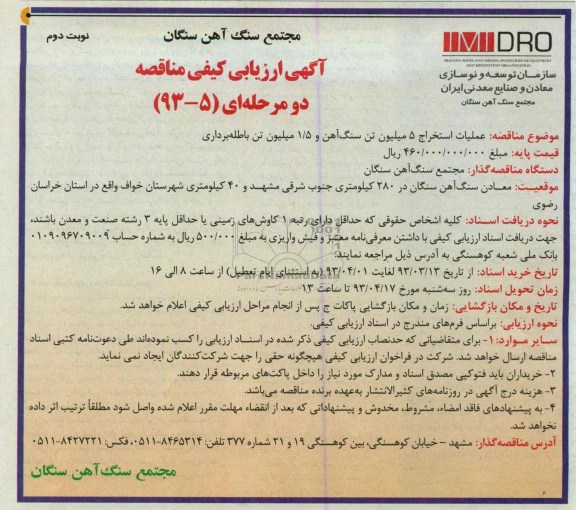 مجتمع سنگ آهن سنگان
نوبت دوم
IMIDRO
IRANIAN MINES AND MINING INDUSTRIES DEVELOPMENT
AND RENOVATION ORGANIZATION
سازمان توسعه و نوسازی
معادن و صنایع معدنی ایران
مجتمع سنگ آهن سنگان
آگهی ارزیابی کیفی مناقصه
دو مرحله‌ای (۵-۹۳)
موضوع مناقصه: عملیات استخراج ۵ میلیون تن سنگ‌آهن و ۱/۵ میلیون تن باطله‌برداری
قیمت پایه: مبلغ ۴۶۰/۰۰۰/۰۰۰/۰۰۰ ریال
دستگاه مناقصه‌گذار: مجتمع سنگ‌آهن سنگان
موقعیت: معادن سنگ‌آهن سنگان در ۲۸۰ کیلومتری جنوب شرقی مشهد و ۴۰ کیلومتری شهرستان خواف واقع در استان خراسان
رضوی
نحوه دریافت اسناد: کلیه اشخاص حقوقی که حداقل دارای رتبه ۱ کاوش‌های زمینی یا حداقل پایه ۳ رشته صنعت و معدن باشند،
جهت دریافت اسناد ارزیابی کیفی با داشتن معرفی‌نامه معتبر و فیش واریزی به مبلغ ۵۰۰/۰۰۰ ریال به شماره حساب ۰۱۰۹۰۹۶۷۰۹۰۰۹
بانک ملی شعبه کوهسنگی به آدرس ذیل مراجعه نمایند:
تاریخ خرید اسناد: از تاریخ ۹۳/۰۳/۱۳ لغایت ۹۳/۰۴/۰۱ (به استثنای ایام تعطیل) از ساعت ۸ الی ۱۶
زمان تحویل اسناد: روز سه‌شنبه مورخ ۹۳/۰۴/۱۷ تا ساعت ۱۳
تاریخ و مکان بازگشایی: زمان و مکان بازگشایی پاکات ج پس از انجام مراحل ارزیابی کیفی اعلام خواهد شد.
نحوه ارزیابی: براساس فرم‌های مندرج در اسناد ارزیابی کیفی.
سایر موارد: ۱- برای متقاضیانی که حدنصاب ارزیابی کیفی ذکر شده در اسناد ارزیابی را کسب نموده‌اند طی دعوت‌نامه کتبی اسناد
مناقصه ارسال خواهد شد. شرکت در فراخوان ارزیابی کیفی هیچگونه حقی را جهت شرکت‌کنندگان ایجاد نمی نماید.
۲- خریداران باید فتوکپی مصدق اسناد و مدارک مورد نیاز را داخل پاکت‌های مربوطه قرار دهند.
۳- هزینه درج آگهی در روزنامه‌های کثیرالانتشار به‌عهده برنده مناقصه می‌باشد.
۴- به پیشنهادهای فاقد امضاء، مشروط، مخدوش و پیشنهاداتی که بعد از انقضاء مهلت مقرر اعلام شده واصل شود مطلقاً ترتیب اثر داده
نخواهد شد.
آدرس مناقصه‌گذار: مشهد - خیابان کوهسنگی، بین کوهسنگی ۱۹ و ۲۱ شماره ۳۷۷ تلفن: ۸۴۶۵۳۱۴-۰۵۱۱، فکس: ۸۴۲۷۲۲۱-۰۵۱۱
مجتمع سنگ آهن سنگان